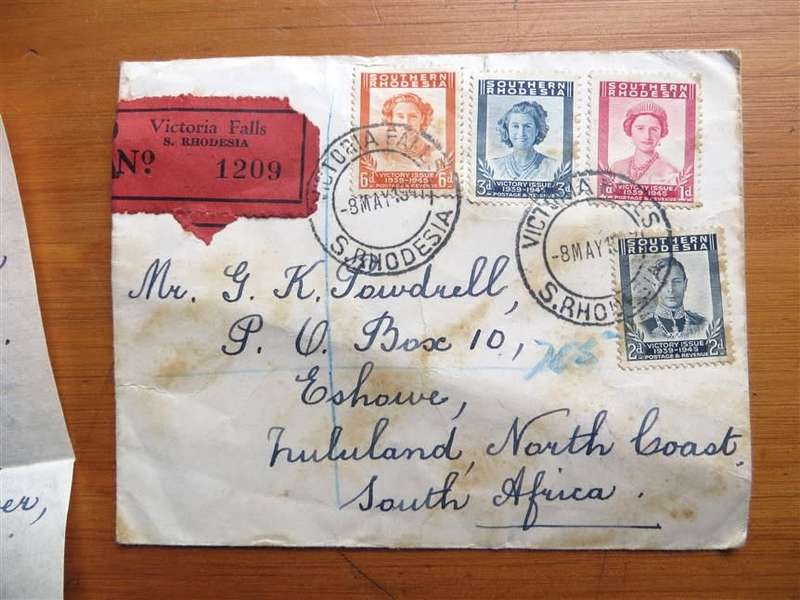 Victoria Falls
S. RHODESIA
Nº 1209
SOUTHERN
RHODESIA
6d 6d
VICTORY ISSUE
1939-1945
POSTAGE & REVENUE
SOUTHERN
RHODESIA
3d 3d
VICTORY ISSUE
1939-1945
POSTAGE & REVENUE
SOUTHERN
RHODESIA
1d
VICTORY ISSUE
1939-1945
POSTAGE & REVENUE
VICTORIA FALLS
-8 MAY
S. RHODESIA
VICTORIA
-8 MAY
S. RHO
SOUTHERN
RHODESIA
2d 2d
VICTORY ISSUE
1939-1945
POSTAGE & REVENUE
Mr. G. K. Powdrell,
P. O. Box 10,
Eshowe,
Zululand, North Coast
South Africa.